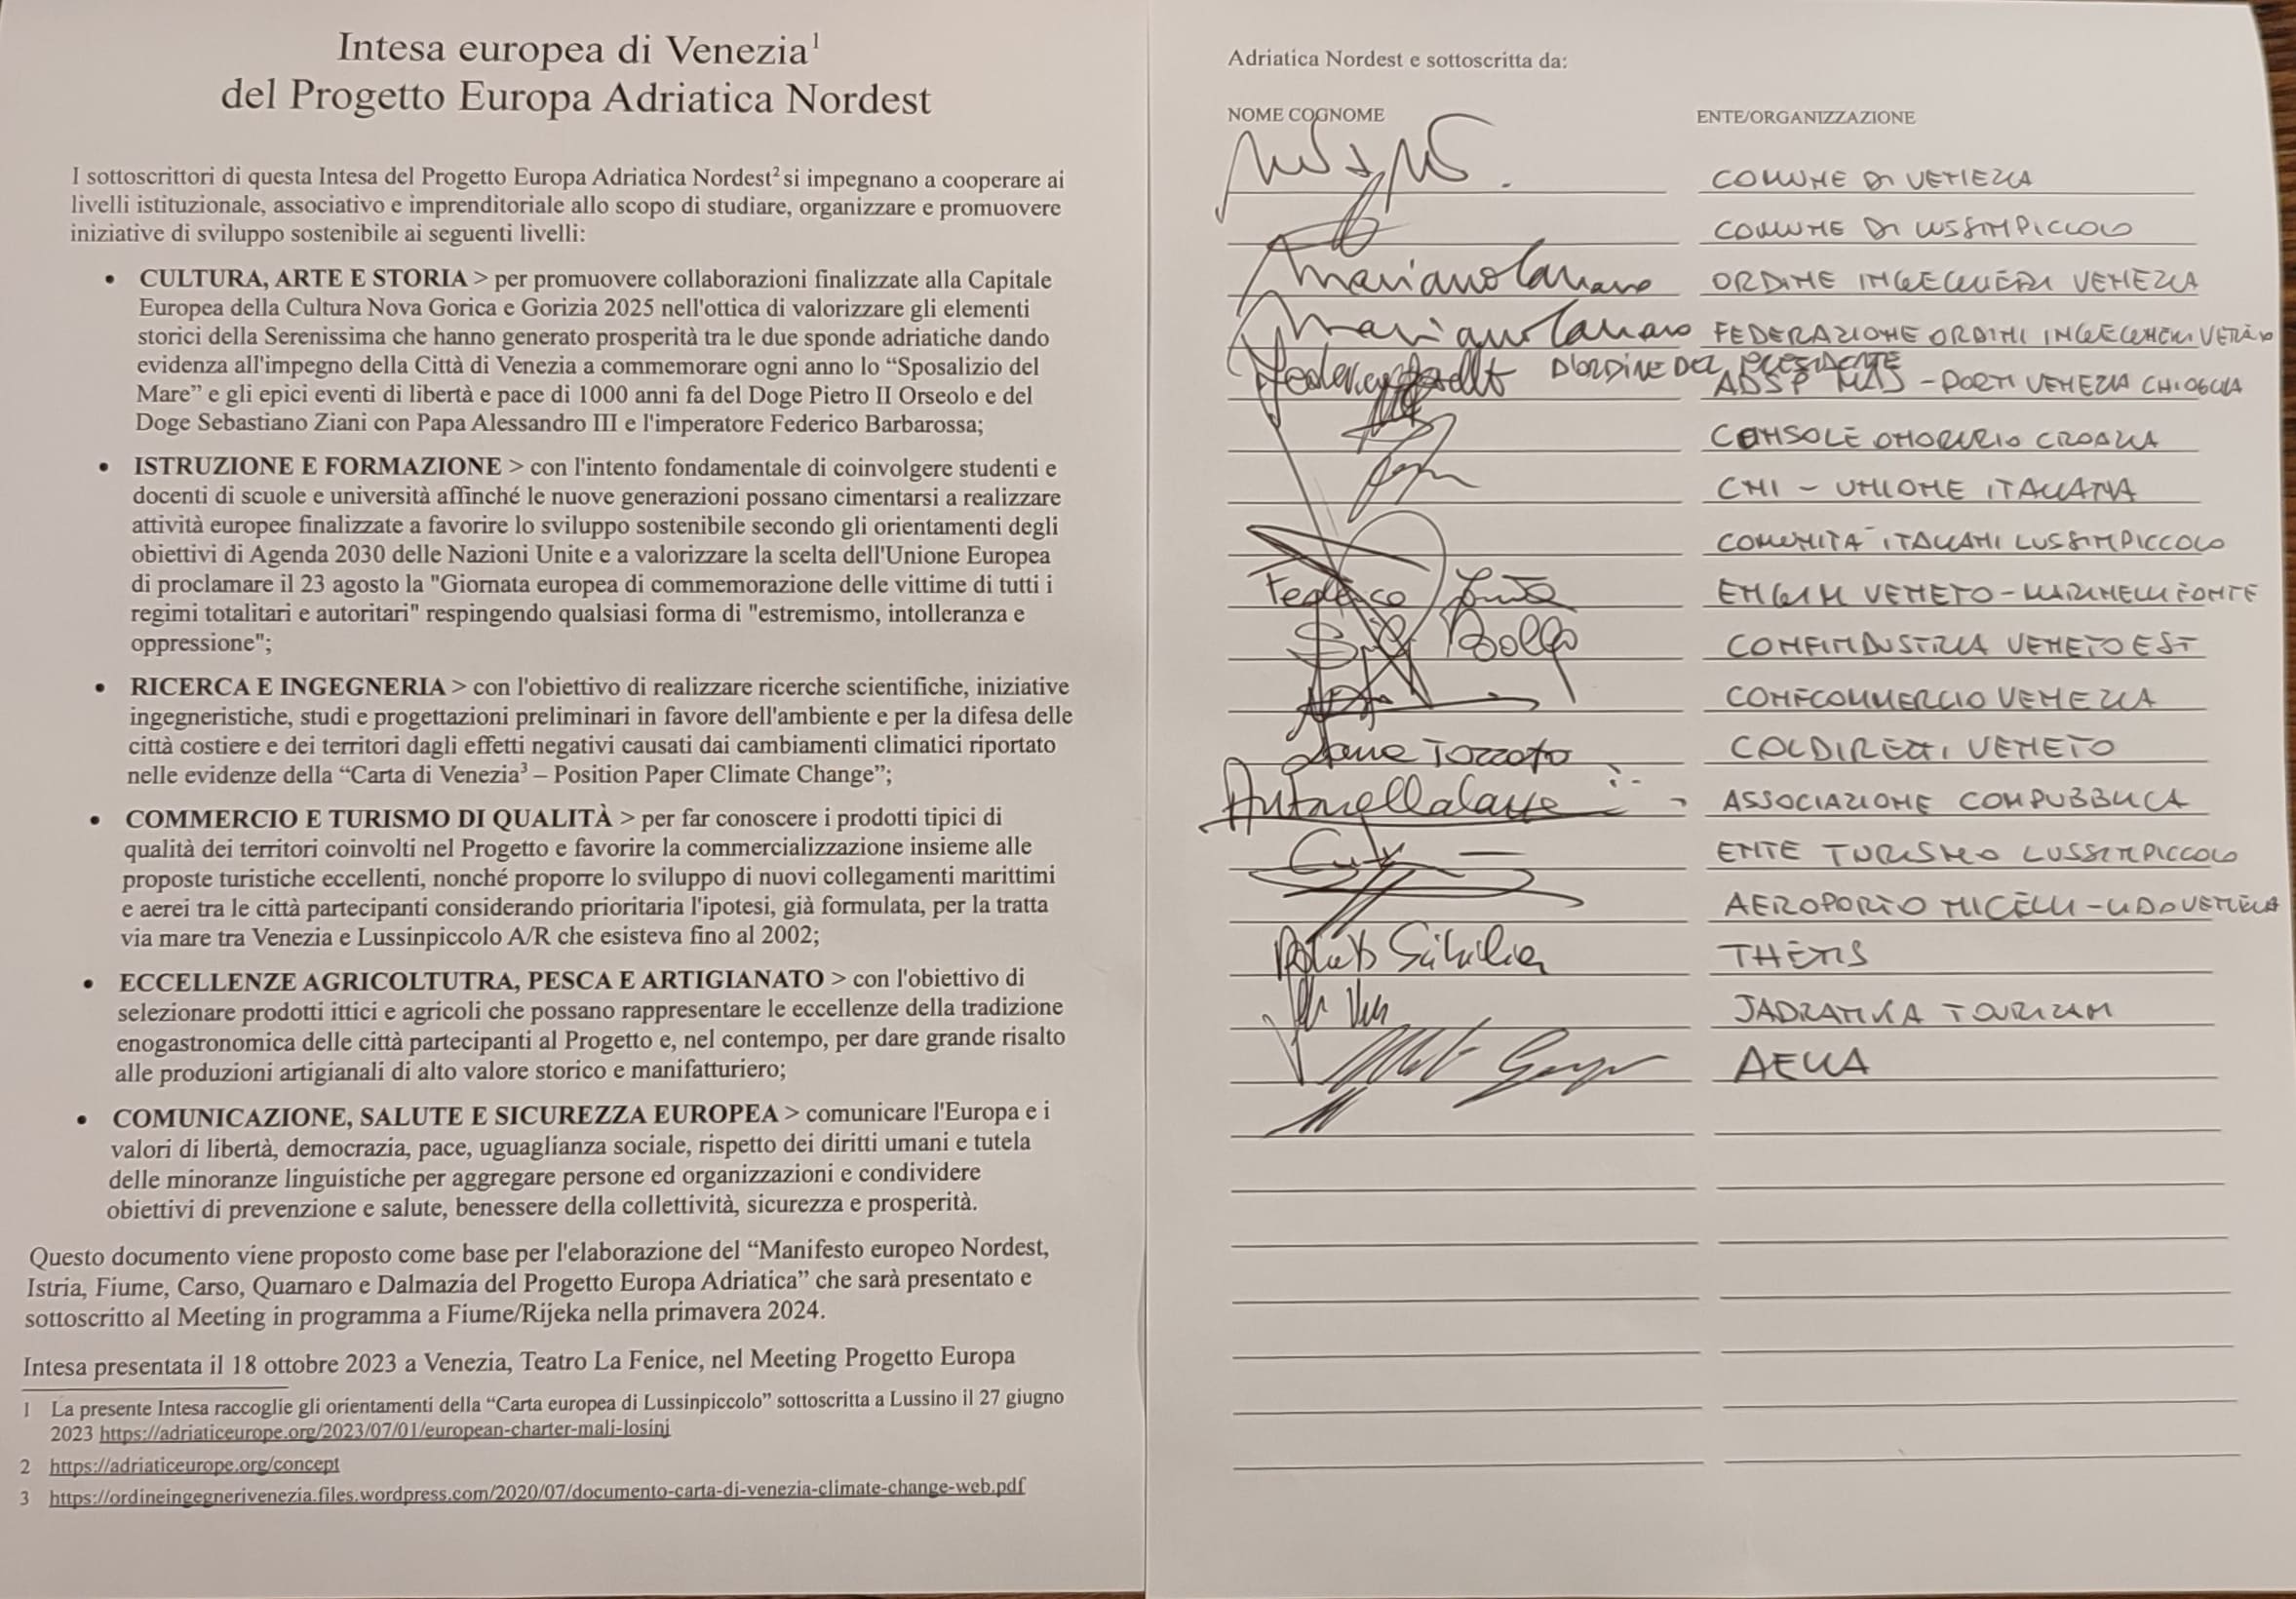 Intesa europea di Venezia1
del Progetto Europa Adriatica Nordest
I sottoscrittori di questa Intesa del Progetto Europa Adriatica Nordest2 si impegnano a cooperare ai
livelli istituzionale, associativo e imprenditoriale allo scopo di studiare, organizzare e promuovere
iniziative di sviluppo sostenibile ai seguenti livelli:
• CULTURA, ARTE E STORIA > per promuovere collaborazioni finalizzate alla Capitale
Europea della Cultura Nova Gorica e Gorizia 2025 nell'ottica di valorizzare gli elementi
storici della Serenissima che hanno generato prosperità tra le due sponde adriatiche dando
evidenza all'impegno della Città di Venezia a commemorare ogni anno lo “Sposalizio del
Mare” e gli epici eventi di libertà e pace di 1000 anni fa del Doge Pietro II Orseolo e del
Doge Sebastiano Ziani con Papa Alessandro III e l'imperatore Federico Barbarossa;
• ISTRUZIONE E FORMAZIONE > con l'intento fondamentale di coinvolgere studenti e
docenti di scuole e università affinché le nuove generazioni possano cimentarsi a realizzare
attività europee finalizzate a favorire lo sviluppo sostenibile secondo gli orientamenti degli
obiettivi di Agenda 2030 delle Nazioni Unite e a valorizzare la scelta dell'Unione Europea
di proclamare il 23 agosto la "Giornata europea di commemorazione delle vittime di tutti i
regimi totalitari e autoritari" respingendo qualsiasi forma di "estremismo, intolleranza e
oppressione";
• RICERCA E INGEGNERIA > con l'obiettivo di realizzare ricerche scientifiche, iniziative
ingegneristiche, studi e progettazioni preliminari in favore dell'ambiente e per la difesa delle
città costiere e dei territori dagli effetti negativi causati dai cambiamenti climatici riportato
nelle evidenze della “Carta di Venezia3 – Position Paper Climate Change”;
• COMMERCIO E TURISMO DI QUALITÀ > per far conoscere i prodotti tipici di
qualità dei territori coinvolti nel Progetto e favorire la commercializzazione insieme alle
proposte turistiche eccellenti, nonché proporre lo sviluppo di nuovi collegamenti marittimi
e aerei tra le città partecipanti considerando prioritaria l'ipotesi, già formulata, per la tratta
via mare tra Venezia e Lussinpiccolo A/R che esisteva fino al 2002;
• ECCELLENZE AGRICOLTUTRA, PESCA E ARTIGIANATO > con l'obiettivo di
selezionare prodotti ittici e agricoli che possano rappresentare le eccellenze della tradizione
enogastronomica delle città partecipanti al Progetto e, nel contempo, per dare grande risalto
alle produzioni artigianali di alto valore storico e manifatturiero;
• COMUNICAZIONE, SALUTE E SICUREZZA EUROPEA > comunicare l'Europa e i
valori di libertà, democrazia, pace, uguaglianza sociale, rispetto dei diritti umani e tutela
delle minoranze linguistiche per aggregare persone ed organizzazioni e condividere
obiettivi di prevenzione e salute, benessere della collettività, sicurezza e prosperità.
Questo documento viene proposto come base per l'elaborazione del “Manifesto europeo Nordest,
Istria, Fiume, Carso, Quarnaro e Dalmazia del Progetto Europa Adriatica” che sarà presentato e
sottoscritto al Meeting in programma a Fiume/Rijeka nella primavera 2024.
Intesa presentata il 18 ottobre 2023 a Venezia, Teatro La Fenice, nel Meeting Progetto Europa
1 La presente Intesa raccoglie gli orientamenti della “Carta europea di Lussinpiccolo” sottoscritta a Lussino il 27 giugno
2023 https://adriaticeurope.org/2023/07/01/european-charter-mali-losinj
2 https://adriaticeurope.org/concept
3 https://ordineingegnerivenezia.files.wordpress.com/2020/07/documento-carta-di-venezia-climate-change-web.pdf
Adriatica Nordest e sottoscritta da:
NOME COGNOME ENTE/ORGANIZZAZIONE
COMUNE DI VENEZIA
COMUNE DI LUSSINPICCOLO
Mariano Carraro ORDINE INGEGNERI VENEZIA
Mariano Carraro FEDERAZIONE ORDINI INGEGNERI VENETO
D'ORDINE DEL PRESIDENTE
ADSP MAS - PORTI VENEZIA CHIOGGIA
CONSOLE ONORARIO CROAZIA
CNI - UNIONE ITALIANA
COMUNITÀ ITALIANI LUSSINPICCOLO
ENGIM VENETO - MARINELLI FONTE
CONFINDUSTRIA VENETO EST
CONFCOMMERCIO VENEZIA
Tozzato COLDIRETTI VENETO
ASSOCIAZIONE COMPUBBLICA
ENTE TURISMO LUSSINPICCOLO
AEROPORTO NICELLI - LIDO VENEZIA
THETIS
JADRANKA TOURIZAM
AELIA